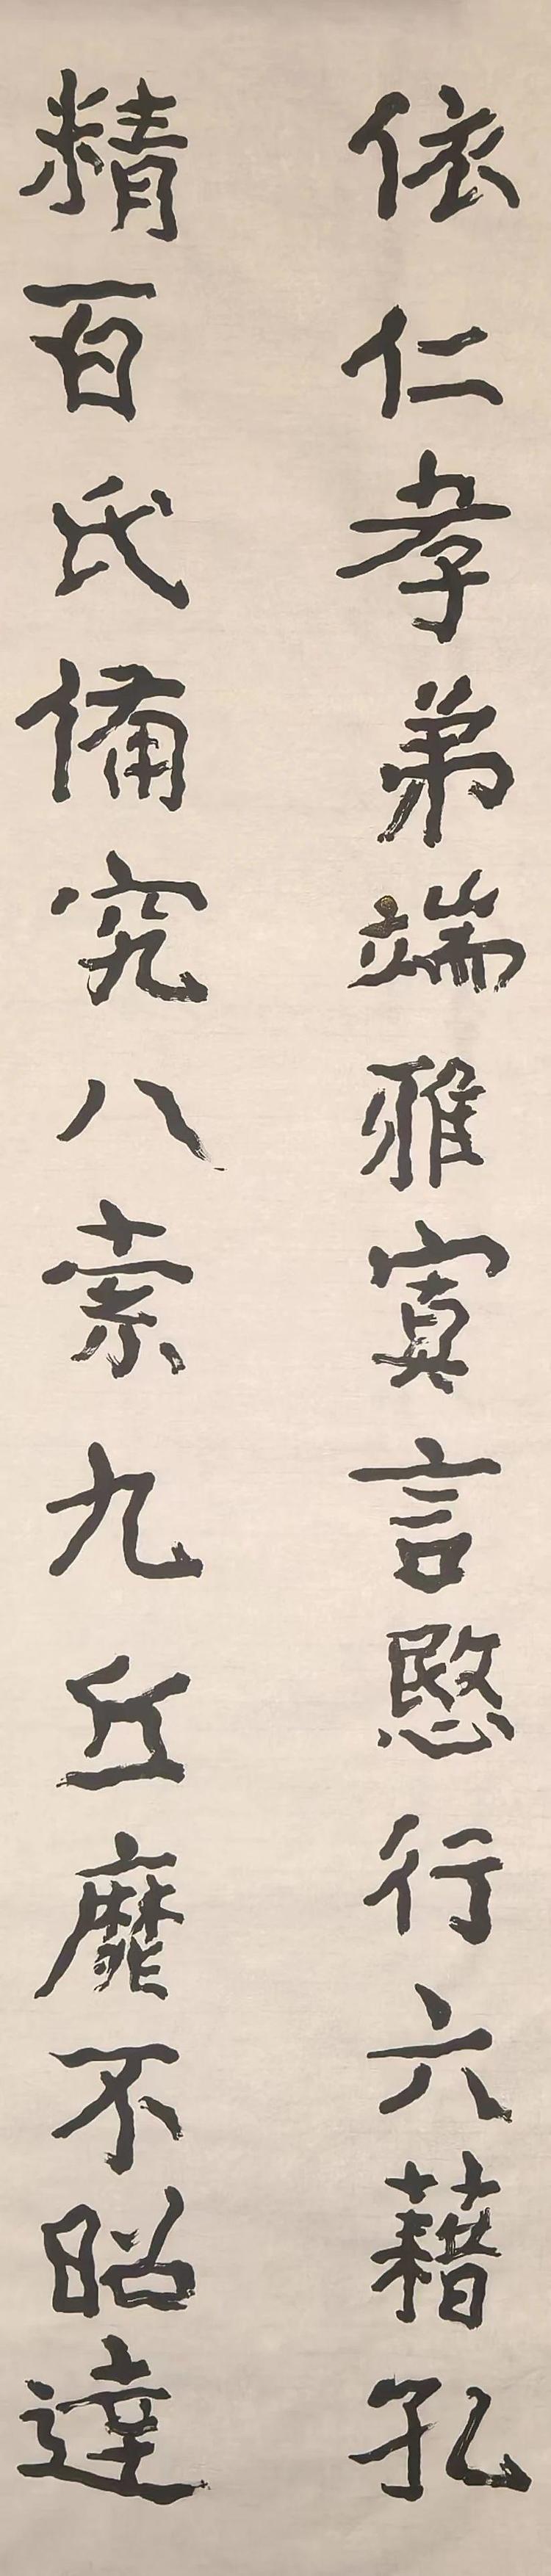 依仁孝弟端雅寘言愍行六藉孔
精百氏備究八索九丘靡不昭達